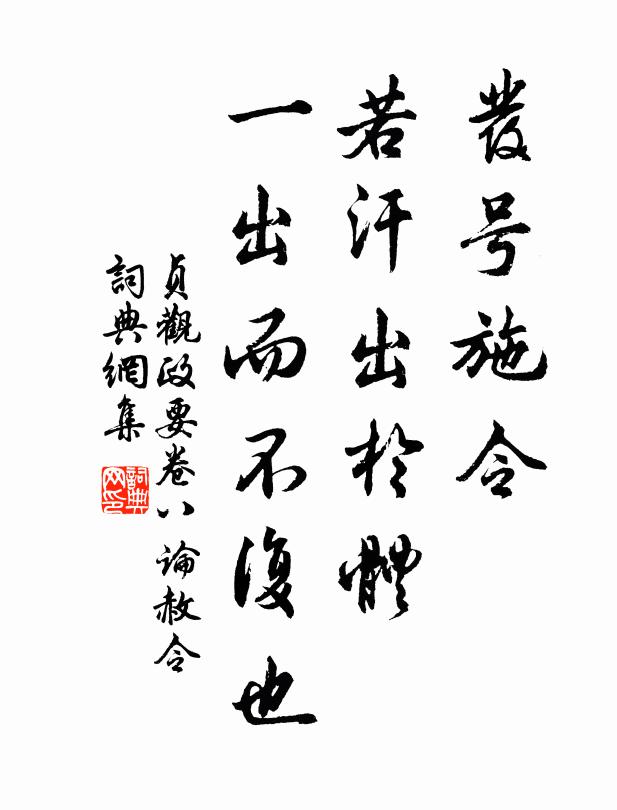 發号施令
若汗出於體
一出而不復也
貞觀政要卷八 論赦令
詞典網集
詞典网印